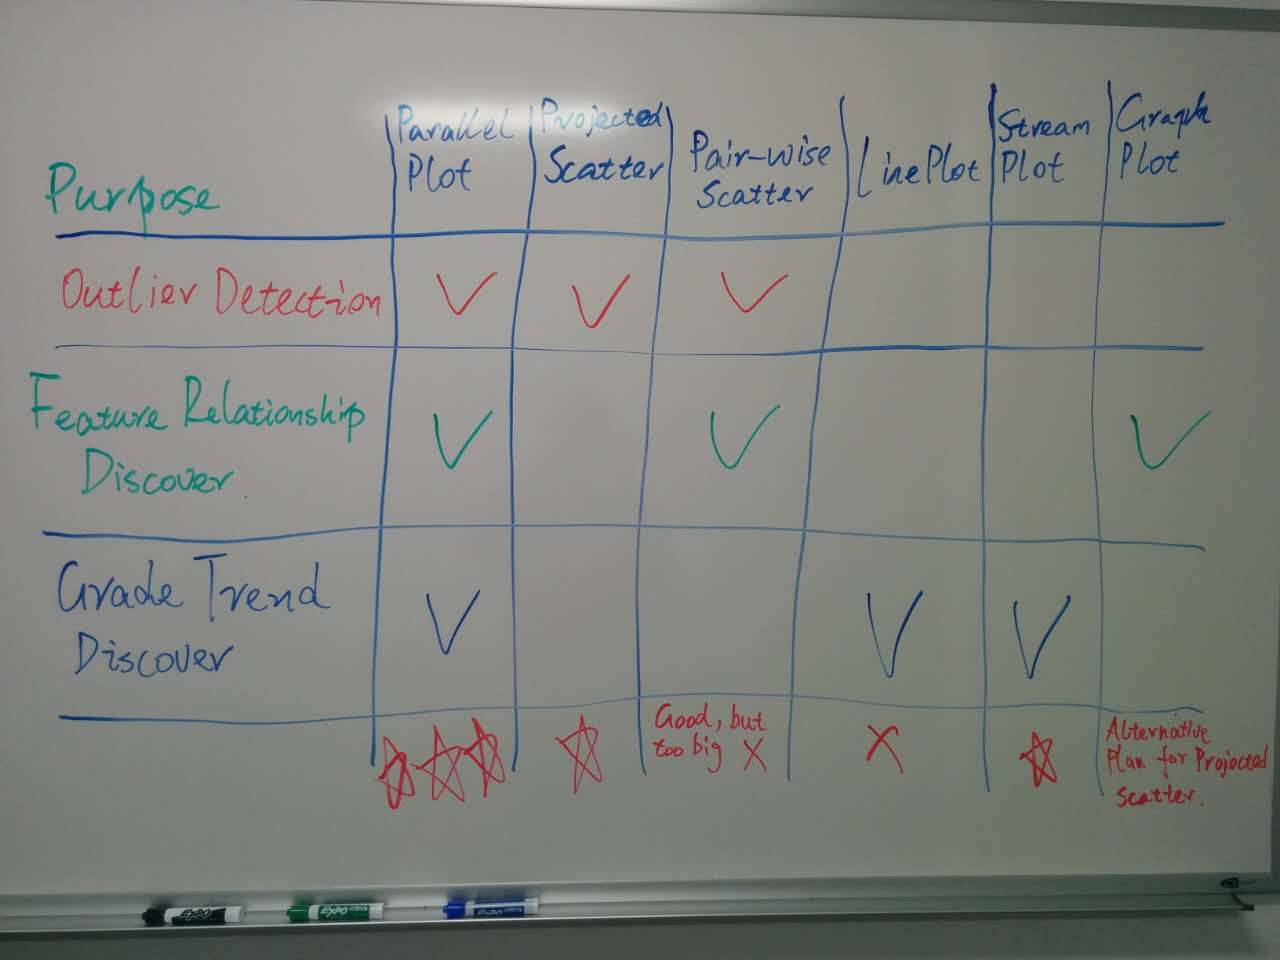 Purpose
Parallel
Plot
Projected
Scatter
Pair-wise
Scatter
Line Plot
Stream
Plot
Graph
Plot
Outlier Detection
Feature Relationship
Discover.
Grade Trend
Discover
Good, but
too big X
X
Alternative
Plan for Projected
Scatter.
EXPO
EXPO
EXPO